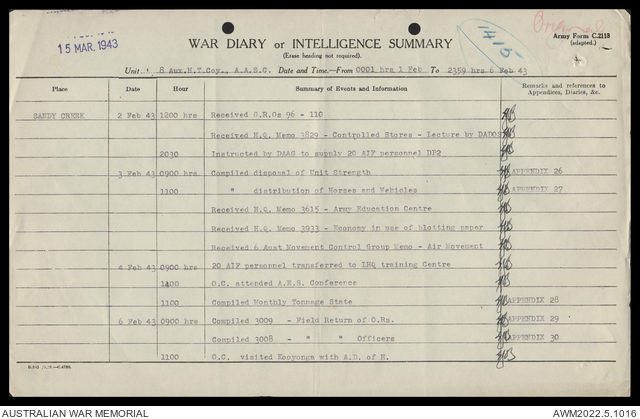 15 MAR. 1943
1415
Original
Army Form C.2118
(adapted.)
WAR DIARY or INTELLIGENCE SUMMARY
(Erase heading not required).
Unit 8 Aux.H.T.Coy., A.A.S.C. Date and Time—From 0001 hrs 1 Feb To 2359 hrs 6 Feb 43
Place Date Hour Summary of Events and Information Remarks and references to Appendices, Diaries, &c.
SANDY CREEK 2 Feb 43 1200 hrs Received G.R.Os 96 - 110
Received H.Q. Memo 3829 - Controlled Stores - Lecture by DADOS
2030 Instructed by DAAG to supply 20 AIF personnel DP2
3 Feb 43 0900 hrs Compiled disposal of Unit Strength APPENDIX 26
1100 " distribution of Horses and Vehicles APPENDIX 27
Received H.Q. Memo 3615 - Army Education Centre
Received H.Q. Memo 3933 - Economy in use of blotting paper
Received 6 Aust Movement Control Group Memo - Air Movement
4 Feb 43 0900 hrs 20 AIF personnel transferred to LHQ training Centre
1400 O.C. attended A.E.S. Conference
1100 Compiled Monthly Tonnage State APPENDIX 28
6 Feb 43 0900 hrs Compiled 3009 - Field Return of O.Rs. APPENDIX 29
Compiled 3008 - " " Officers APPENDIX 30
1100 O.C. visited Kooyonga with A.D. of H.
AUSTRALIAN WAR MEMORIAL
AWM2022.5.1016